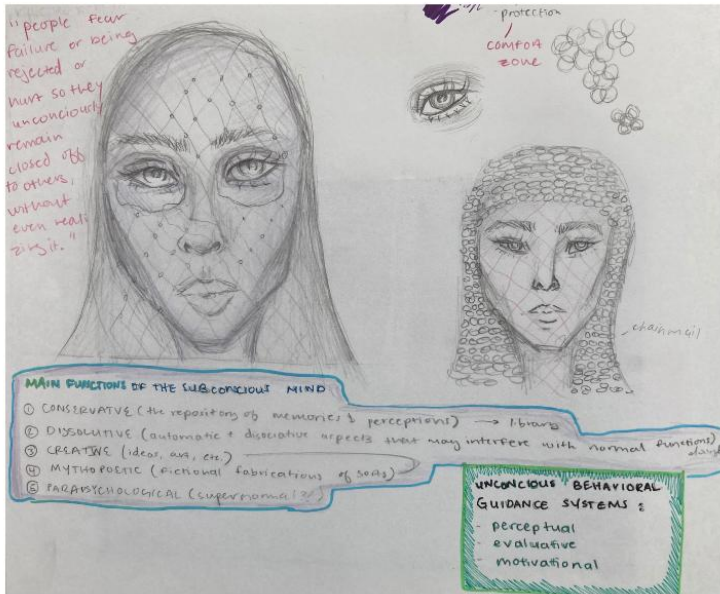 "people fear
failure or being
rejected or
hurt so they
unconciously
remain
closed off
to others,
without
even reali
zing it."
protection
COMFORT
ZONE
chainmail
MAIN FUNCTIONS OF THE SUBCONSCIOUS MIND
① CONSERVATIVE (the repository of memories & perceptions) → library
② DISSOLUTIVE (automatic + dissociative aspects that may interfere with normal functions)
③ CREATIVE (ideas, etc.)
④ MYTHOPOETIC (fictional fabrications of sorts)
⑤ PARAPSYCHOLOGICAL (supernormal
UNCONCIOUS BEHAVIORAL
GUIDANCE SYSTEMS:
- perceptual
- evaluative
- motivational